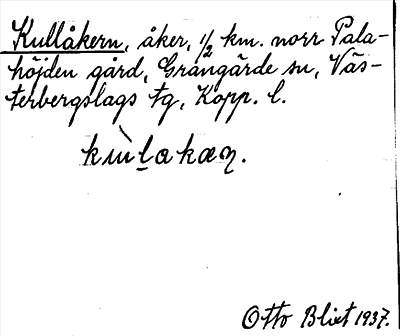 Kullåkern, åker, 1/2 km. norr Pala-
höjden gård, Grangärde sn, Väs-
terbergslags tg, Kopp. l.
Otto Blixt 1937.